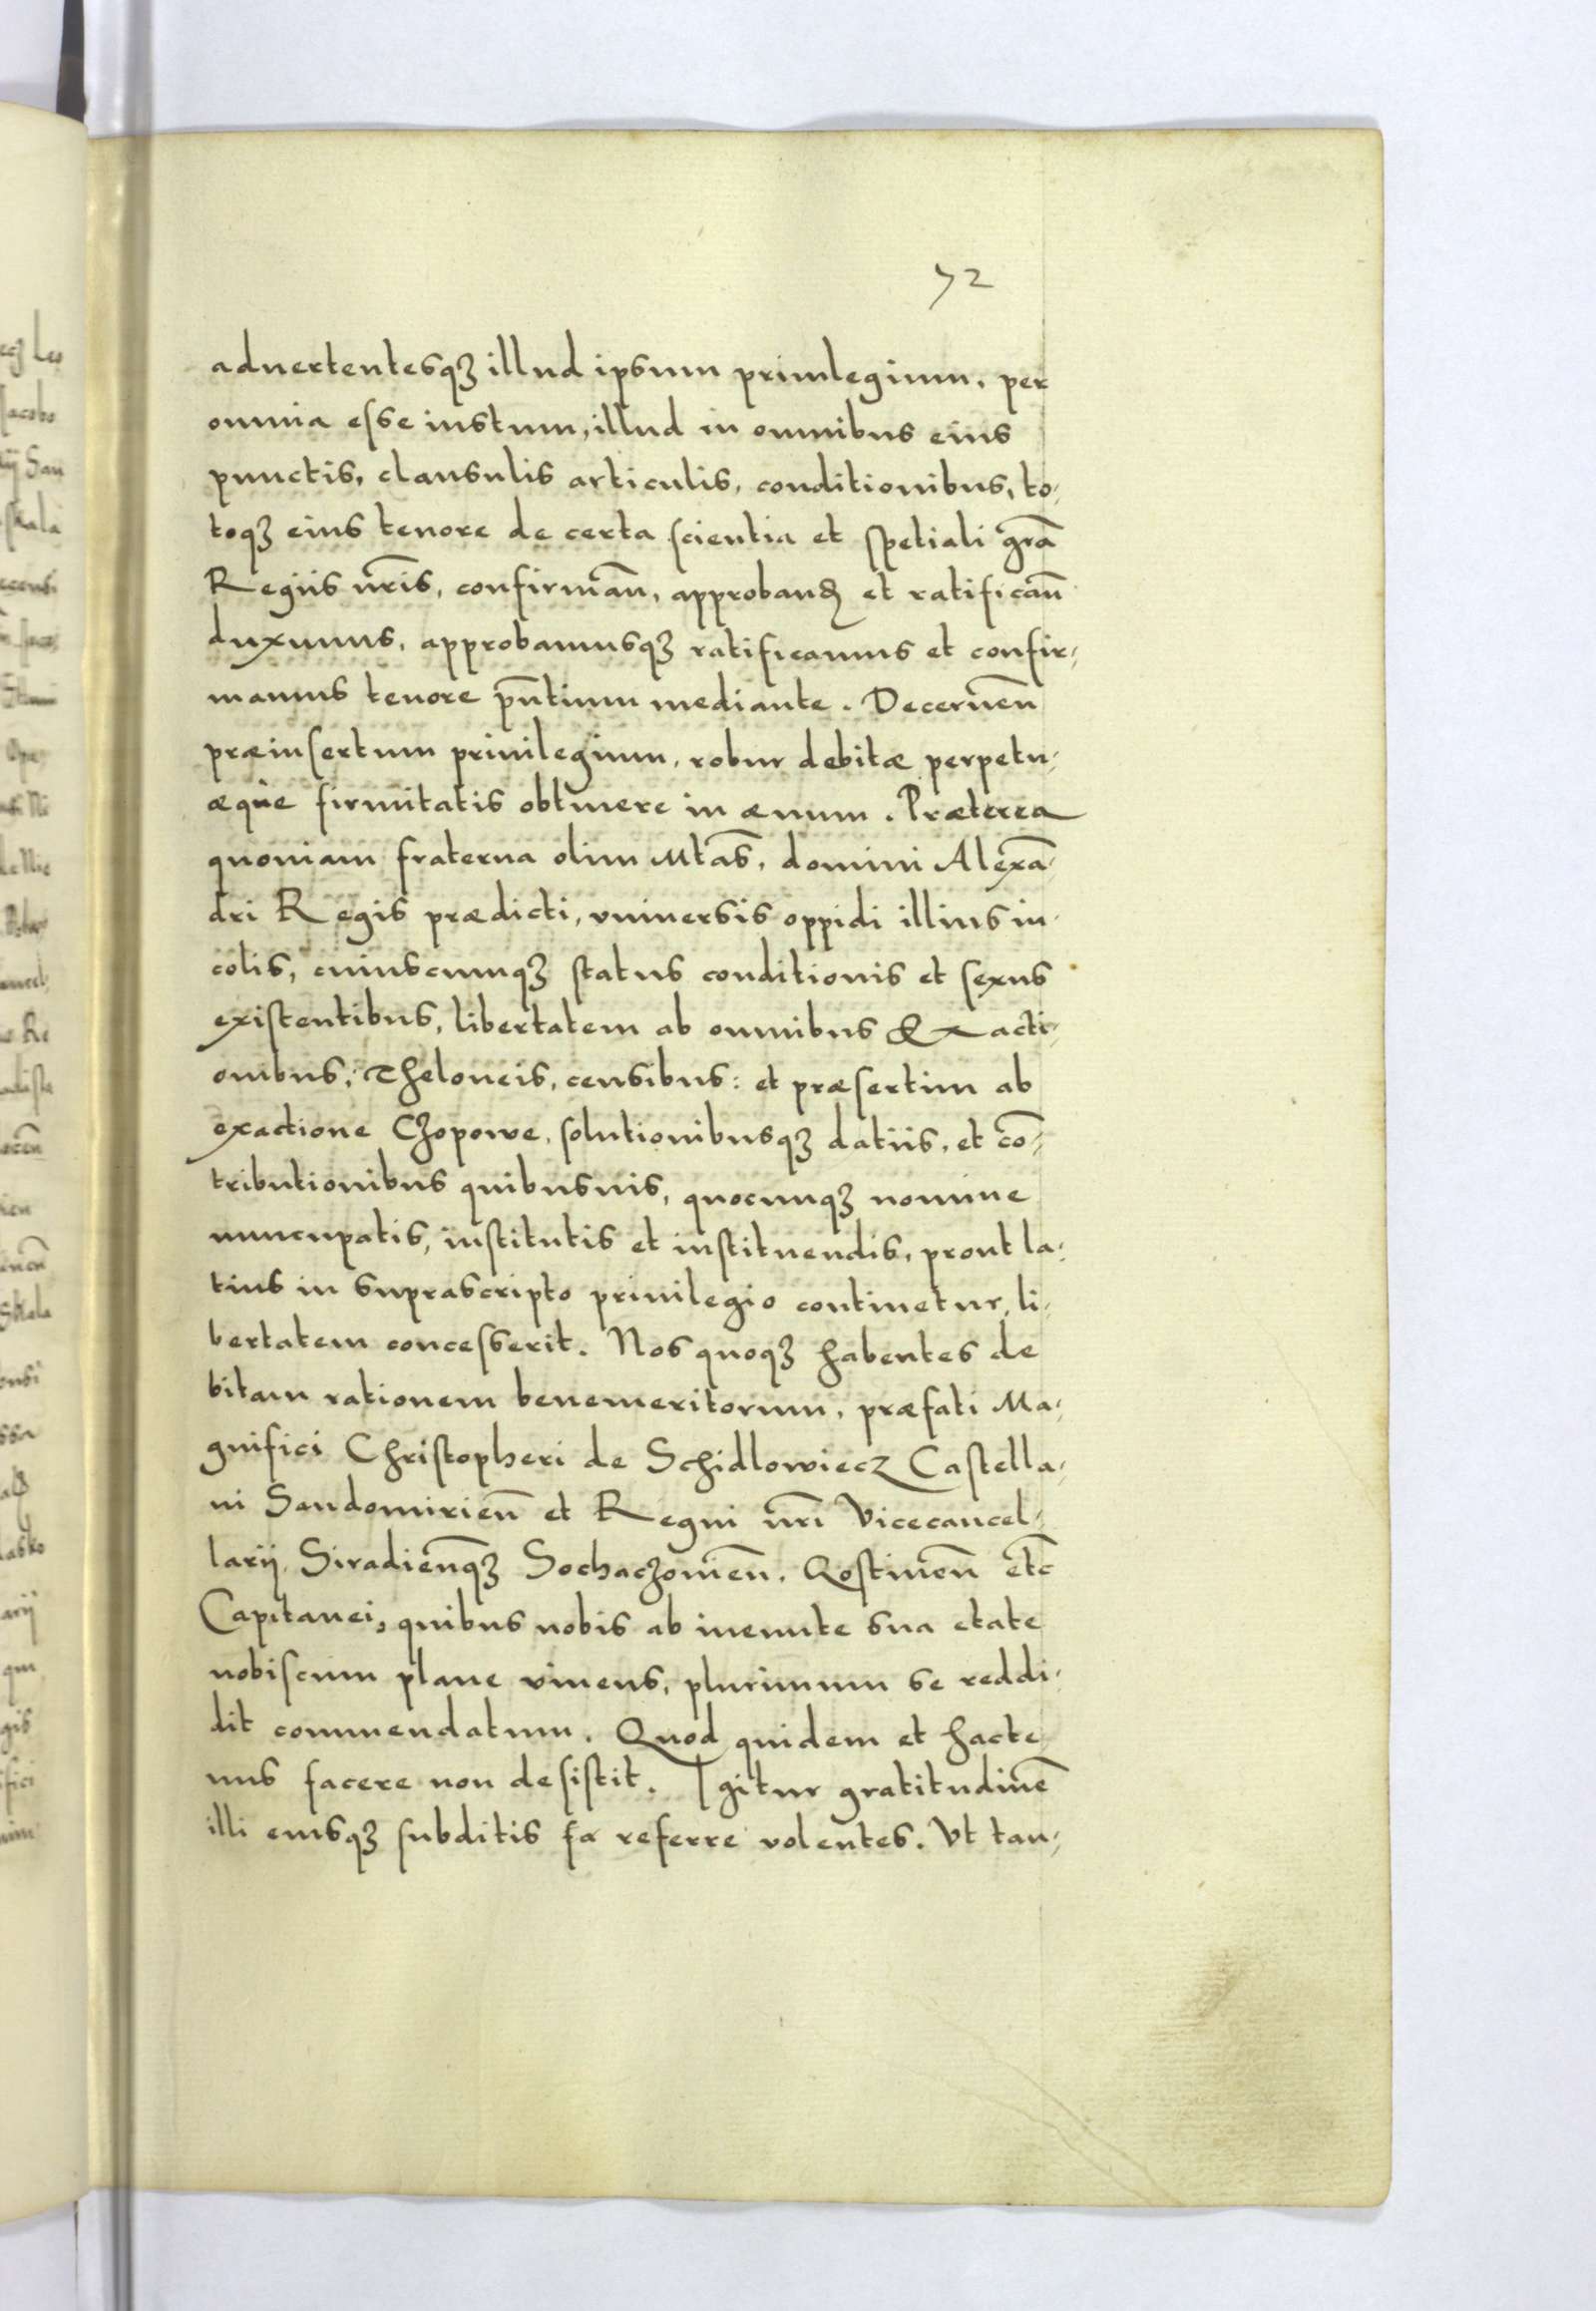 72
aduertentesqꝫ illud ipsum priuilegium, per
omnia esse iustum, illud in omnibus eius
punctis, clausulis articulis, conditionibus, to⸗
toqꝫ eius tenore de certa scientia et spetiali gr̃a
Regiis nr̃is, confirmañ, approbanꝺ et ratificañ
duximus, approbamusqꝫ ratificamus et confir⸗
mamus tenore pñtium mediante. Decerneñ
præinsertum priuilegium, robur debitæ perpetu⸗
æque firmitatis obtinere in æuum. Præterea
quoniam fraterna olim Mtãs, domini Alexã⸗
dri Regis prædicti, vniuersis oppidi illius in⸗
colis, cuiuscunqꝫ status conditionis et sexus
existentibus, libertatem ab omnibus Exacti⸗
onibus, Theloneis, censibus: et præsertim ab
exactione Czopowe, solutionibusqꝫ datiis, et cõ⸗
tributionibus quibusuis, quocunqꝫ nomine
nuncupatis, institutis et instituendis, prout la⸗
tius in suprascripto priuilegio continetur, li⸗
bertatem concesserit. Nos quoqꝫ habentes de
bitam rationem benemeritorum, præfati Ma⸗
gnifici Christopheri de Schidlowiecz Castella⸗
ni Sendomirieñ et Regni nr̃i Vicecancel⸗
larij, Siradieñqꝫ Sochaczouieñ. Qostineñ etc̃
Capitanei, quibus nobis ab ineunte sua etate
nobiscum plane viuens, plurimum se reddi⸗
dit commendatum. Quod quidem et hacte
nus facere non desistit. Igitur gratitudinẽ
illi eiusqꝫ subditis fa referre volentes. Vt tan⸗